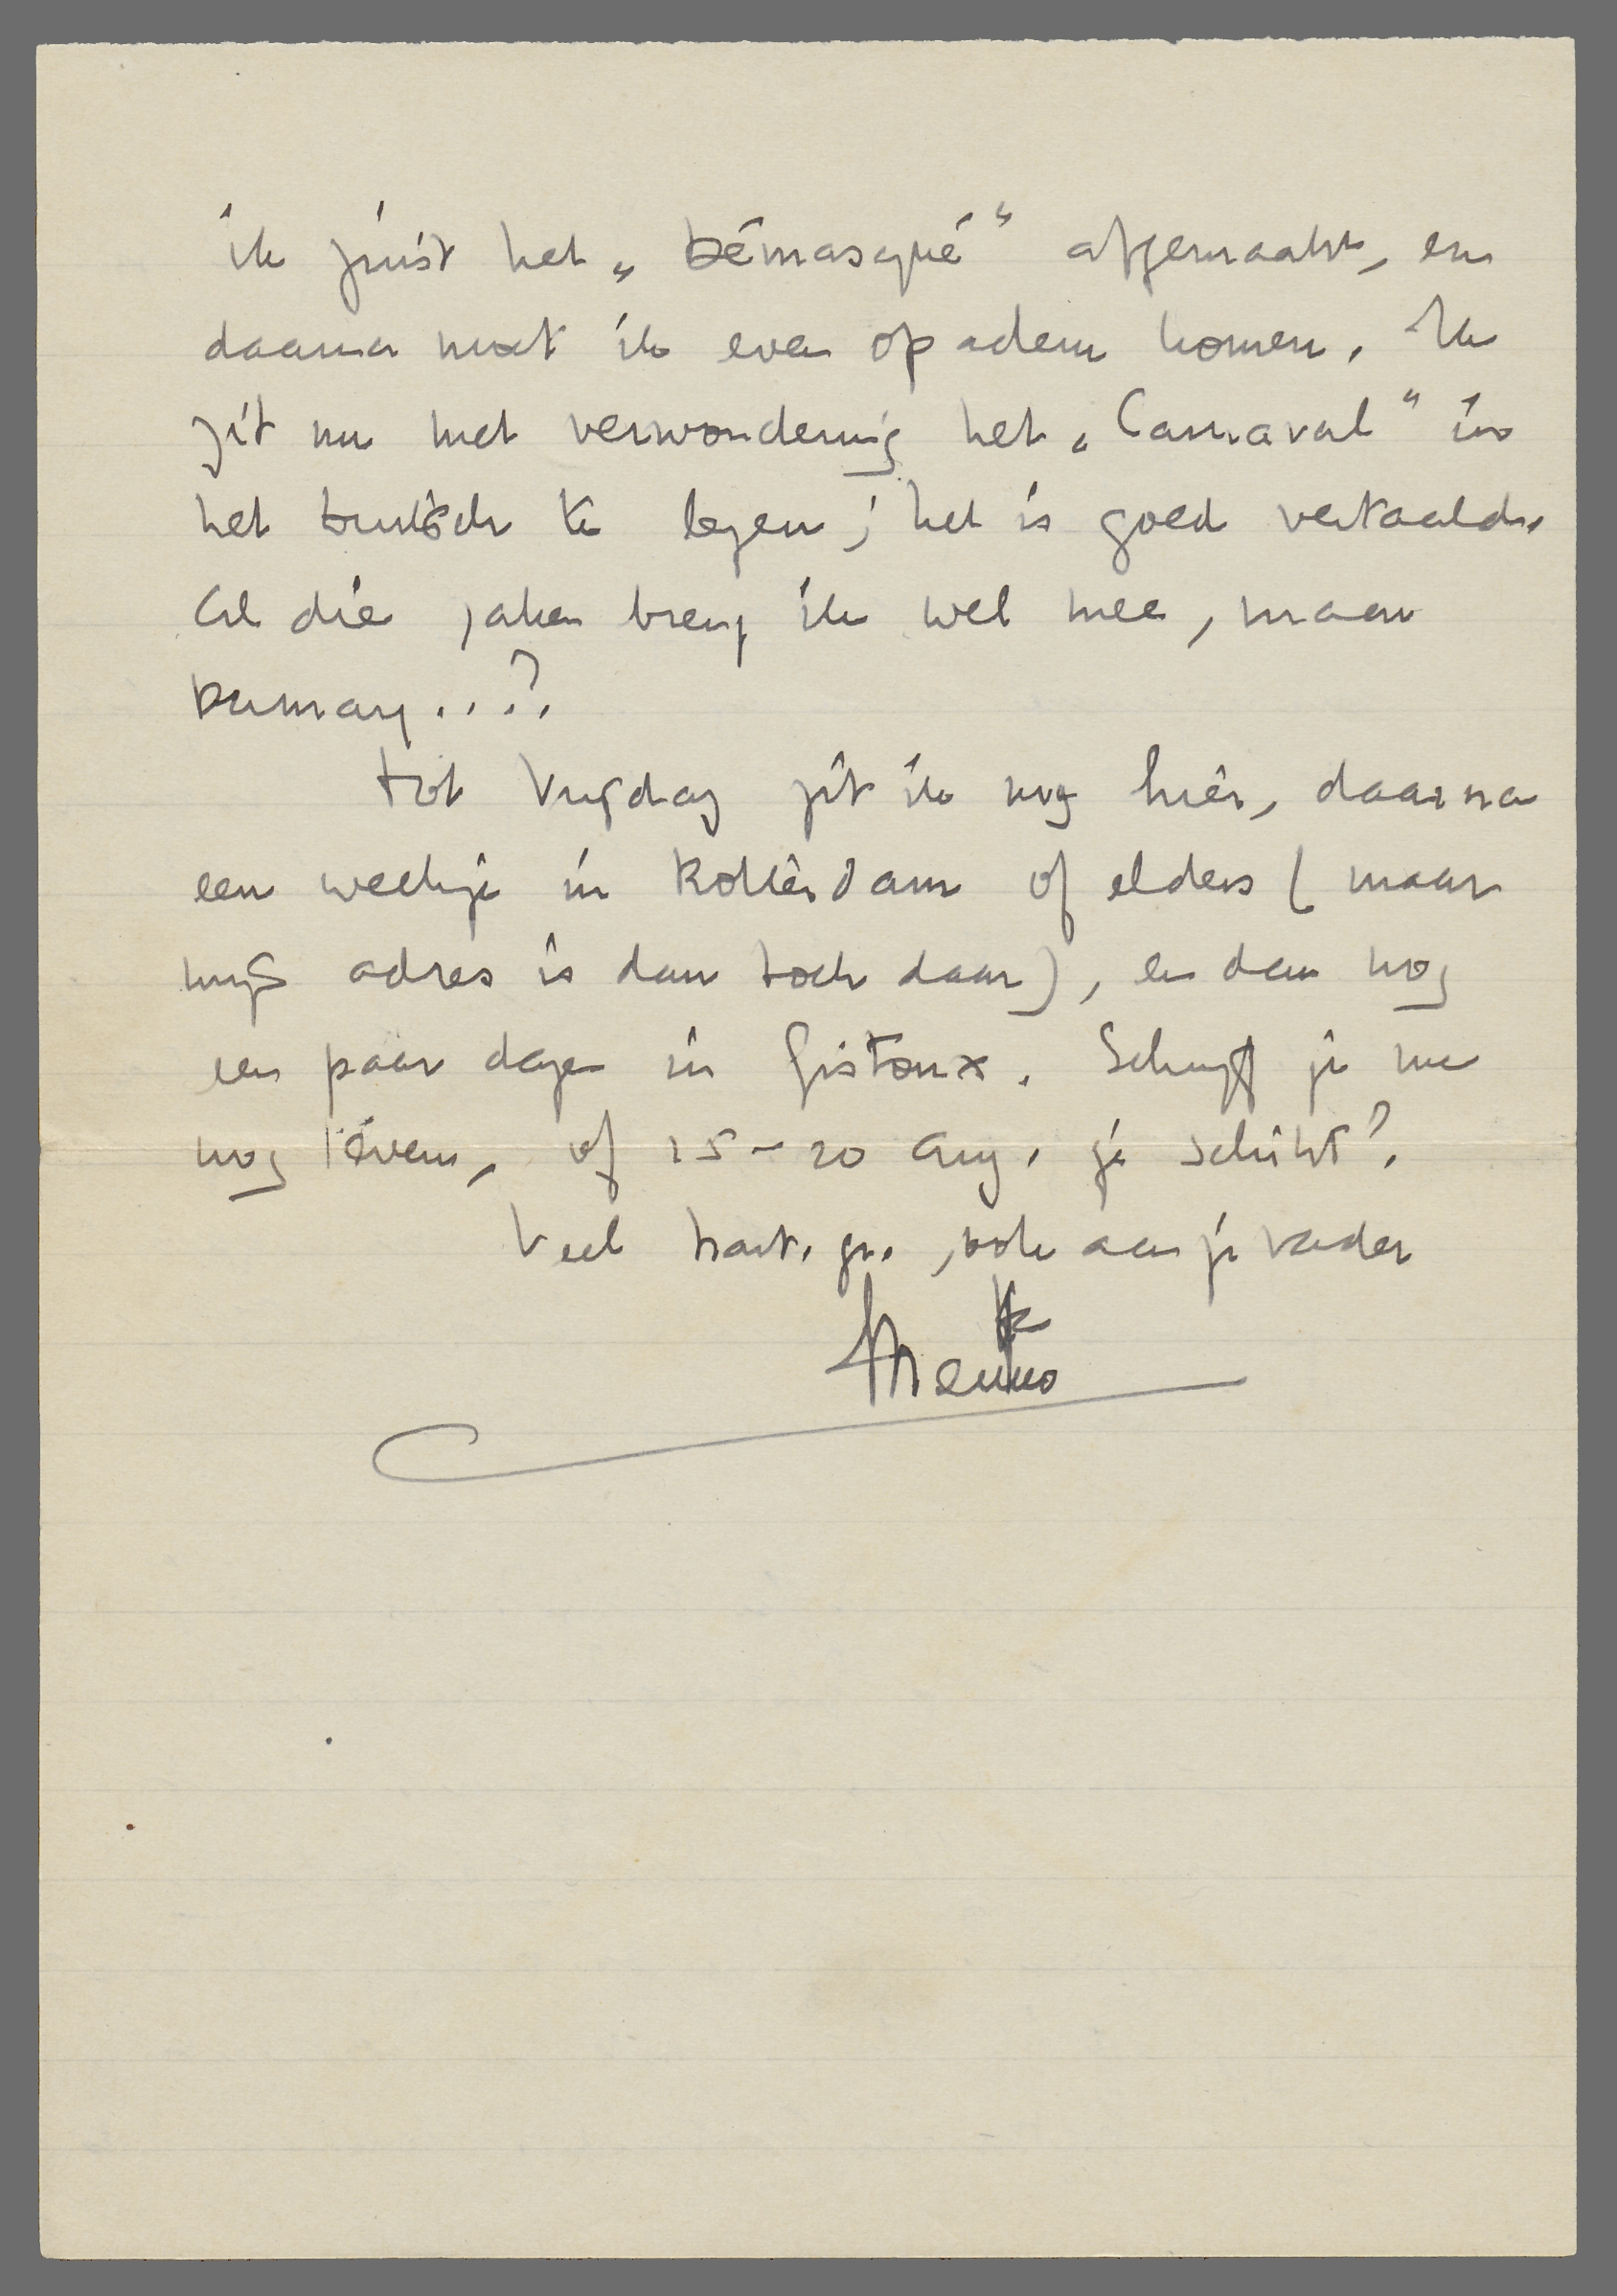 ik juist het „Démasqué” afgemaakt, en
daarna moet ik even op adem komen. Ik
zit nu met verwondering het „Carnaval” in
het Duitsch te lezen; het is goed vertaald.
Al die zaken breng ik wel mee, maar
Dumay...?
Tot Vrijdag zit ik nog hier, daarna
een weekje in Rotterdam of elders (maar
mijn adres is dan toch daar), en dan nog
een paar dagen in Gistoux. Schrijf je me
nog even, of 15-20 Aug. je schikt?
Veel hart. gr., ook aan je vader
Menno